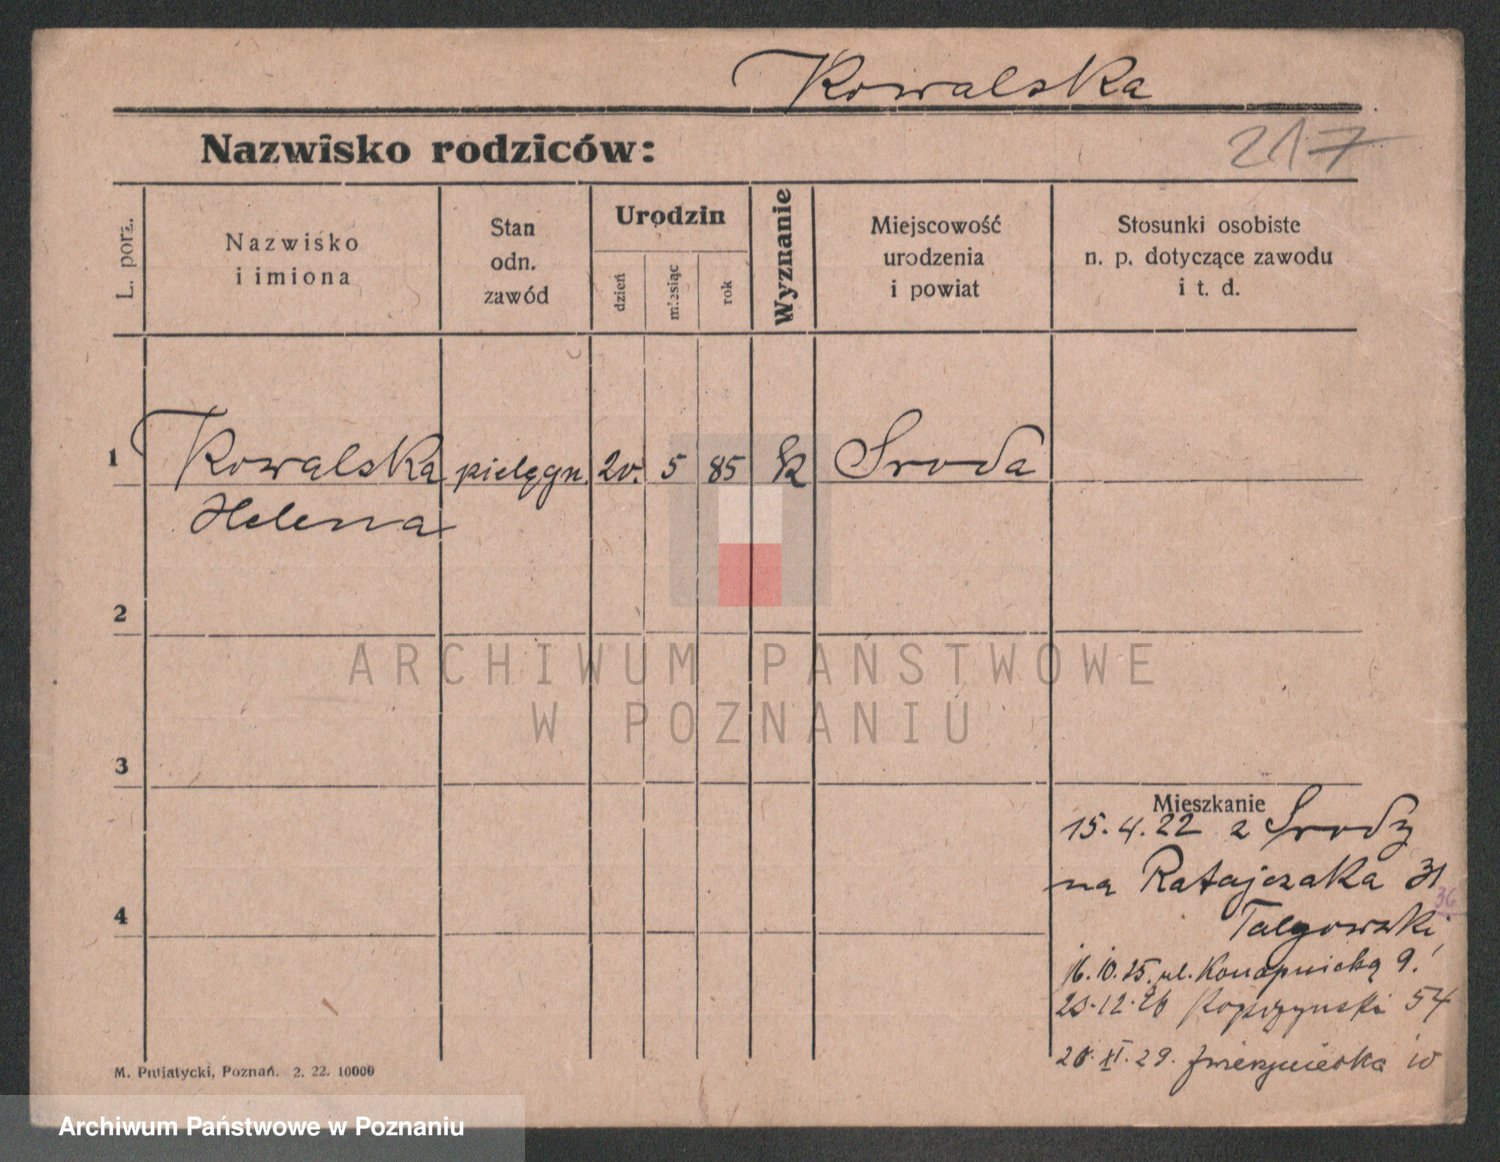 Kowalska
Nazwisko rodziców:
217
L. porz.
Nazwisko
i imiona
Stan
odn.
zawód
Urodzin
dzień
miesiąc
rok
Wyznanie
Miejscowość
urodzenia
i powiat
Stosunki osobiste
n. p. dotyczące zawodu
i t. d.
1 Kowalska pielęgn. 20. 5 85 k Sroda
Helena
2
3
4
ARCHIWUM PAŃSTWOWE
W POZNANIU
Mieszkanie
15.4.22 z Srody
na Ratajczaka 31
36
16.10.25. ul. Konopnicką 9.
23.12.26 54
20.XI.29. Zwierzyniecka
M. Putiatycki, Poznań. 2. 22. 10000
Archiwum Państwowe w Poznaniu